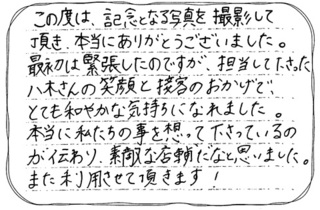 この度は、記念となる写真を撮影して
頂き、本当にありがとうございました。
最初は緊張したのですが、担当して下さった
八木さんの笑顔と接客のおかげで、
とても和やかな気持ちになれました。
本当に私たちの事を想って下さっているの
が伝わり、素敵な店舗だなと思いました。
また利用させて頂きます!